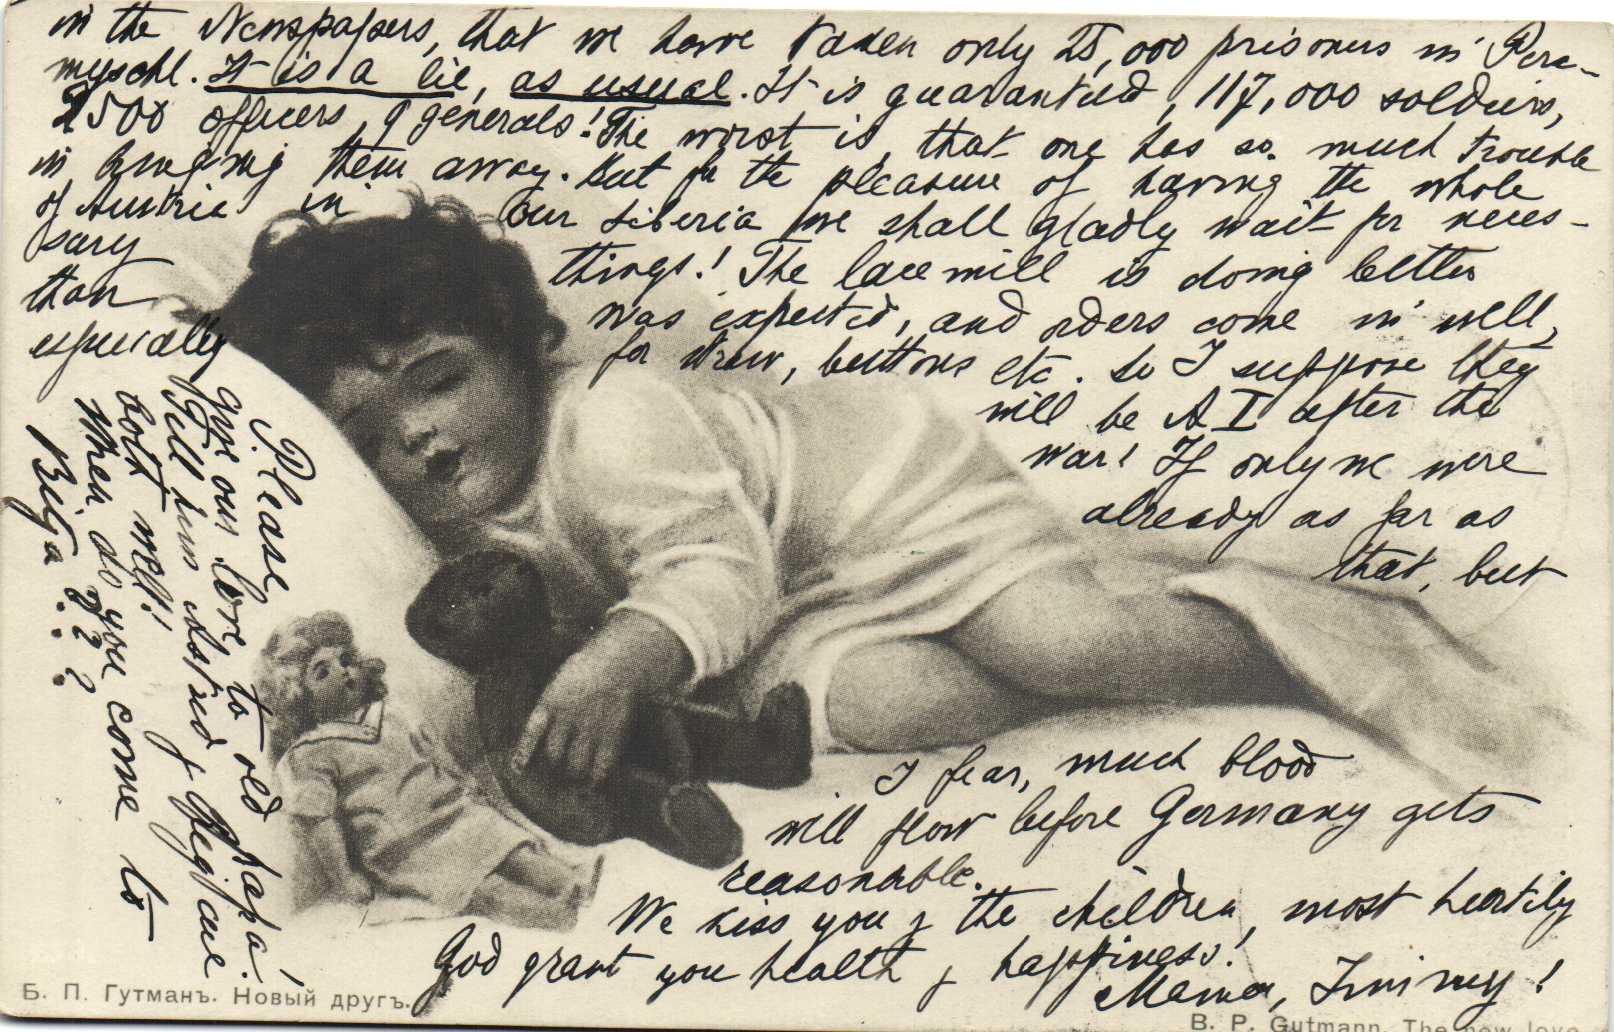 in the Newspapers, that we have taken only 25,000 prisoners in Pere-
myschl. It is a lie, as usual. It is guaranteed, 117,000 soldiers,
2500 officers, 9 generals! The worst is, that one has so much trouble
in bringing them away. But for the pleasure of having the whole
of Austria in our Siberia we shall gladly wait for neces-
sary things! The lace mill is doing better
than was expected, and orders come in well,
especially for straw, buttons etc. So I suppose they
will be A I after the
war! If only we were
already as far as
that, but
I fear, much blood
will flow before Germany gets
reasonable.
We kiss you & the children, most heartily
God grant you health & happiness!
Mama, Jimmy!
Please
give our love to old Papa!
Tell him & are
both well!
When do you come to
Riga . . ? ? ?
Б. П. Гутманъ. Новый другъ.
B. P. Gutmann. The new love